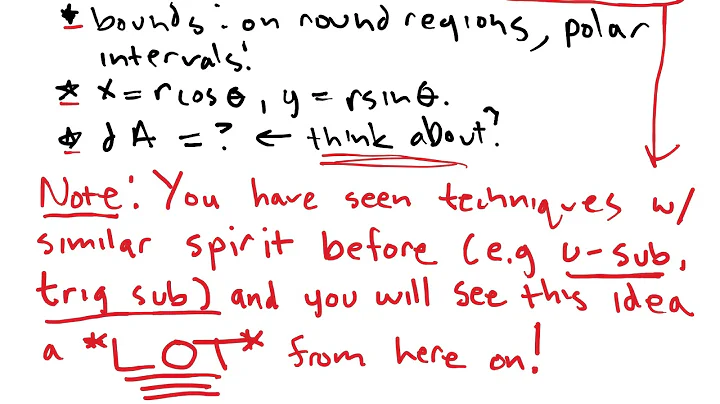 * bounds: on round regions, polar
intervals!
* x = r cos θ, y = r sin θ.
* dA = ? ← think about?
Note: You have seen techniques w/
similar spirit before (e.g u-sub,
trig sub) and you will see this idea
a *LOT* from here on!